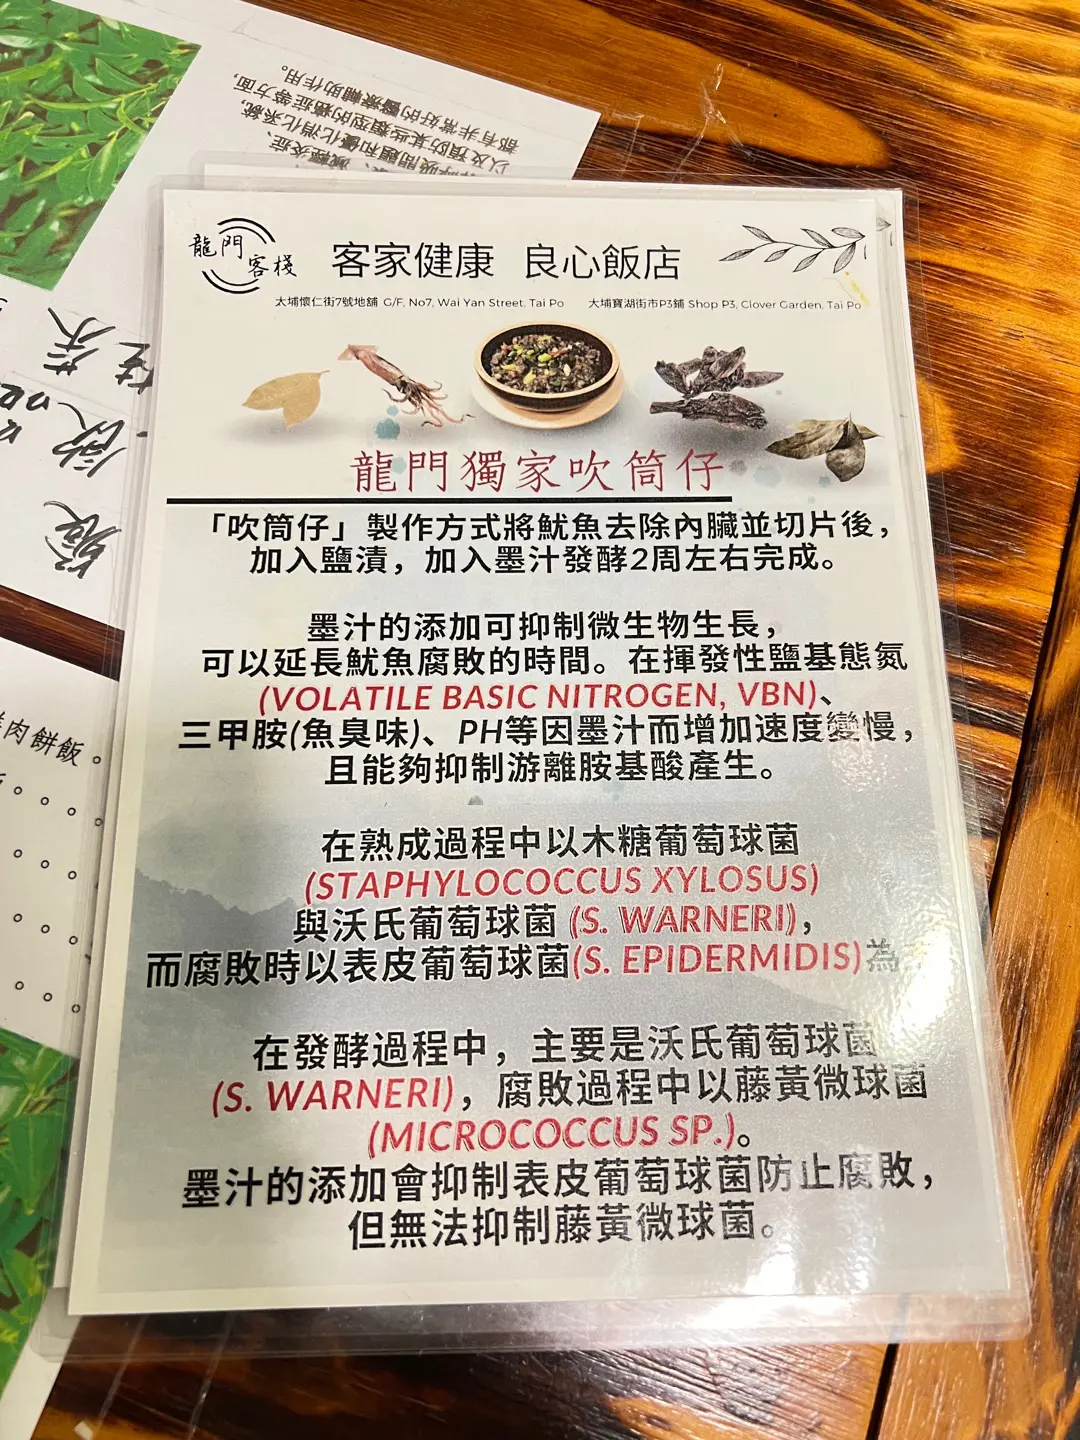 龍門
客棧
客家健康 良心飯店
大埔懷仁街7號地舖 G/F, No7, Wai Yan Street, Tai Po 大埔寶湖街市P3鋪 Shop P3, Clover Garden, Tai Po
龍門獨家吹筒仔
「吹筒仔」製作方式將魷魚去除內臟並切片後,
加入鹽漬,加入墨汁發酵2周左右完成。
墨汁的添加可抑制微生物生長,
可以延長魷魚腐敗的時間。在揮發性鹽基態氮
(VOLATILE BASIC NITROGEN, VBN)、
三甲胺(魚臭味)、PH等因墨汁而增加速度變慢,
且能夠抑制游離胺基酸產生。
在熟成過程中以木糖葡萄球菌
(STAPHYLOCOCCUS XYLOSUS)
與沃氏葡萄球菌 (S. WARNERI),
而腐敗時以表皮葡萄球菌(S. EPIDERMIDIS)為
在發酵過程中,主要是沃氏葡萄球菌
(S. WARNERI),腐敗過程中以藤黃微球菌
(MICROCOCCUS SP.)。
墨汁的添加會抑制表皮葡萄球菌防止腐敗,
但無法抑制藤黃微球菌。
都有非常好的醫療輔助作用。
以及預防某些類型的癌症等方面,
肉餅飯。